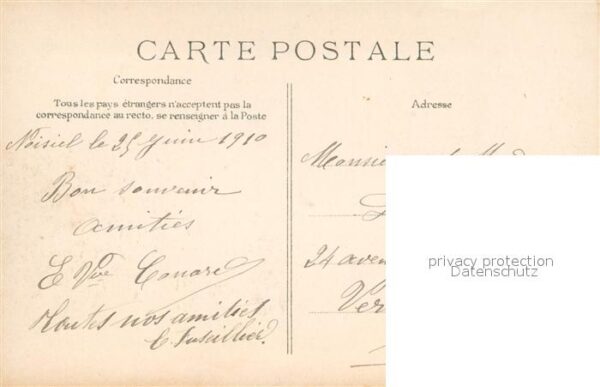 CARTE POSTALE
Correspondance
Tous les pays étrangers n'acceptent pas la
correspondance au recto, se renseigner à la Poste
Adresse
Noisiel le 25 Juin 1910
Bon souvenir
Amitiés
E Vve
Toutes nos amitiés
Monsieur
24 aven
Ver
privacy protection
Datenschutz